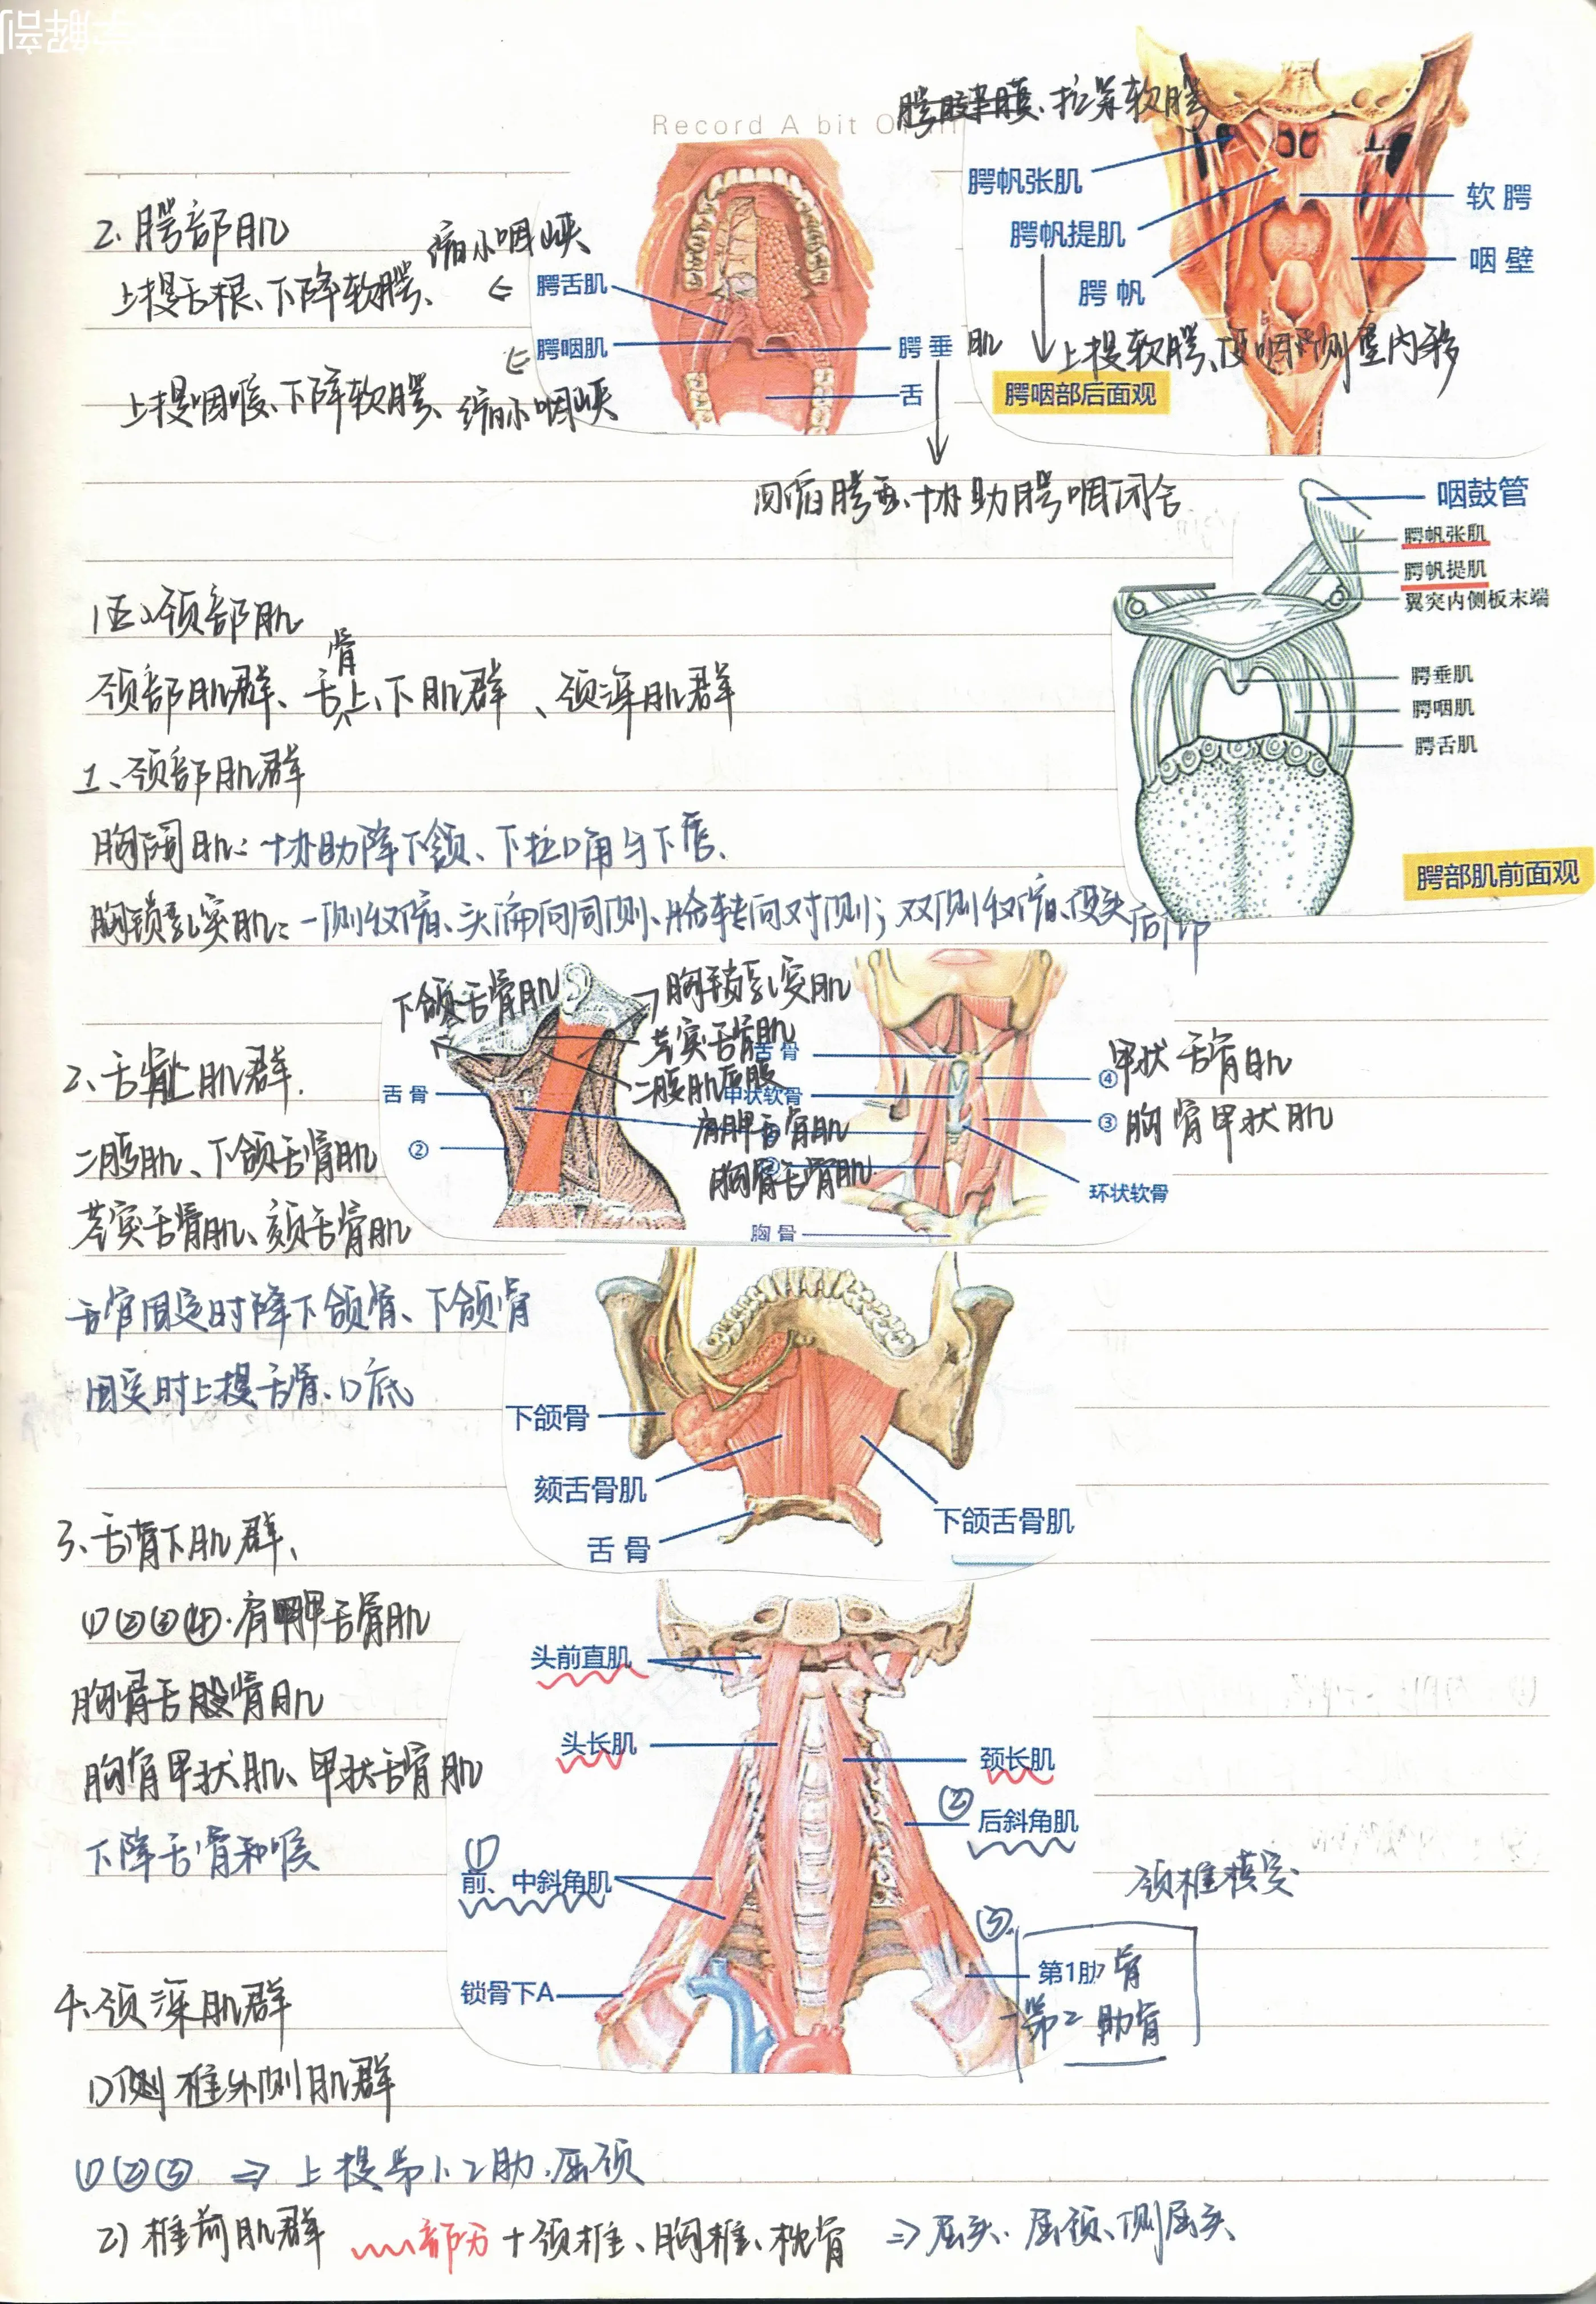 Record A bit Of
腭腱膜、拉紧软腭
腭帆张肌
腭帆提肌
腭帆
软腭
咽壁
上提软腭、咽侧壁内移
腭咽部后面观
2. 腭部肌
缩小咽峡
上提舌根、下降软腭、
腭舌肌
腭咽肌
腭垂肌
舌
上提咽喉、下降软腭、缩小咽峡
回缩腭垂、协助腭咽闭合
咽鼓管
腭帆张肌
腭帆提肌
翼突内侧板末端
腭垂肌
腭咽肌
腭舌肌
腭部肌前面观
(五)颈部肌
颈部肌群、舌骨上、下肌群、颈深肌群
1、颈部肌群
胸阔肌: 协助降下颌、下拉口角与下唇、
胸锁乳突肌: 一侧收缩、头偏向同侧、脸转向对侧; 双侧收缩、使头后仰
下颌舌骨肌
胸锁乳突肌
茎突舌骨肌
二腹肌后腹
舌骨
②
舌骨
甲状软骨
肩胛舌骨肌
胸骨舌骨肌
胸骨
④甲状舌骨肌
③胸骨甲状肌
环状软骨
2、舌骨上肌群.
二腹肌、下颌舌骨肌
茎突舌骨肌、颏舌骨肌
舌骨固定时降下颌骨、下颌骨
固定时上提舌骨、口底
下颌骨
颏舌骨肌
舌骨
下颌舌骨肌
3、舌骨下肌群、
①②③④.肩胛舌骨肌
胸骨舌骨肌
胸骨甲状肌、甲状舌骨肌
下降舌骨和喉
头前直肌
头长肌
颈长肌
②
后斜角肌
①
前、中斜角肌
颈椎横突
③
第1肋骨
第2肋骨
锁骨下A
4.颈深肌群
1)侧 椎外侧肌群
①②③ ⇒ 上提第1、2肋、屈颈
2) 椎前肌群 部分+颈椎、胸椎、枕骨 ⇒ 屈头、屈颈、侧屈头